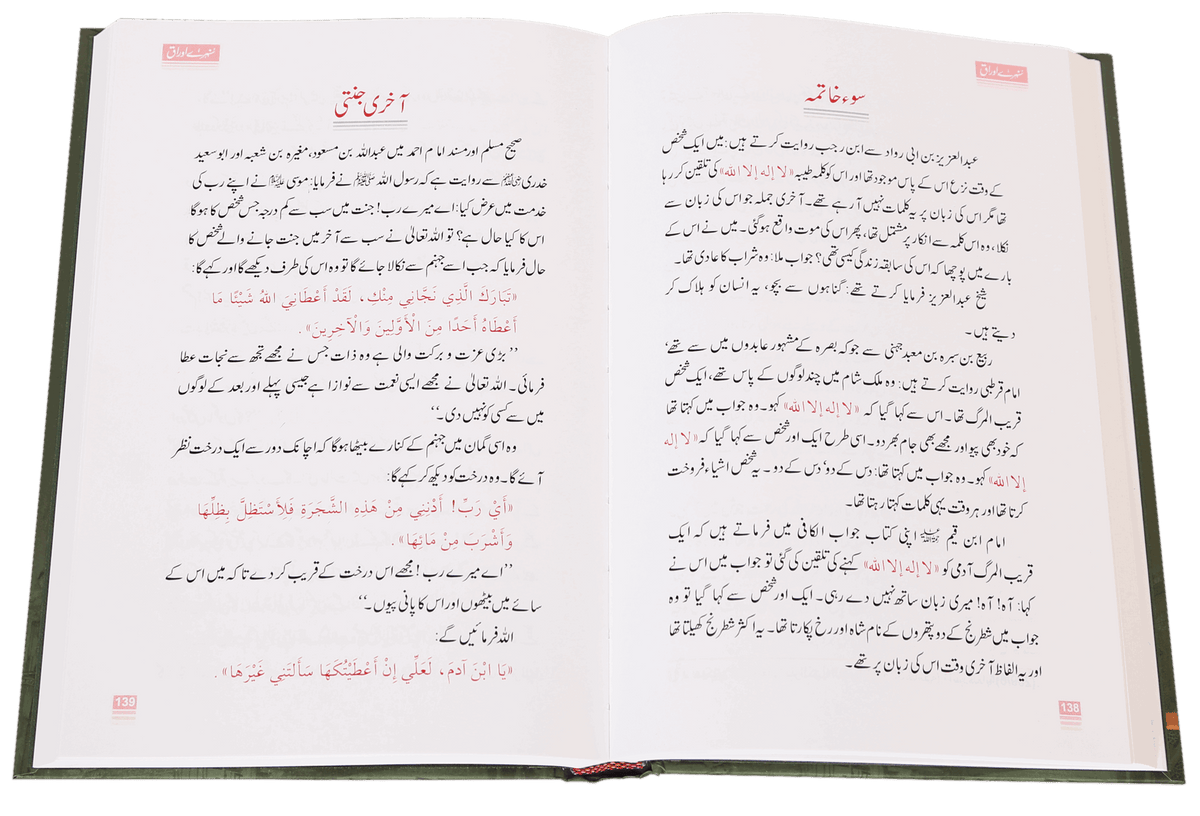 سنہرے اوراق
سوء خاتمہ
عبدالعزیز بن ابی رواد سے ابن رجب روایت کرتے ہیں: میں ایک شخص
کے وقت نزع اس کے پاس موجود تھا اور اس کو کلمہ طیبہ «لا إله إلا الله» کی تلقین کر رہا
تھا مگر اس کی زبان پر یہ کلمات نہیں آ رہے تھے۔ آخری جملہ جو اس کی زبان سے
نکلا، وہ اس کلمہ سے انکار پر مشتمل تھا، پھر اس کی موت واقع ہوگئی۔ میں نے اس کے
بارے میں پوچھا کہ اس کی سابقہ زندگی کیسی تھی؟ جواب ملا: وہ شراب کا عادی تھا۔
شیخ عبدالعزیز فرمایا کرتے تھے: گناہوں سے بچو، یہ انسان کو ہلاک کر
دیتے ہیں۔
ربیع بن سبرہ بن معبد جہنی سے جو کہ بصرہ کے مشہور عابدوں میں سے تھے،
امام قرطبی روایت کرتے ہیں: وہ ملک شام میں چند لوگوں کے پاس تھے، ایک شخص
قریب المرگ تھا۔ اس سے کہا گیا کہ «لا إله إلا الله» کہو۔ وہ جواب میں کہتا تھا
کہ خود بھی پیو اور مجھے بھی جام بھر دو۔ اسی طرح ایک اور شخص سے کہا گیا کہ «لا إله
إلا الله» کہو۔ وہ جواب میں کہتا تھا: دس کے دو، دس کے دو۔ یہ شخص اشیاء فروخت
کرتا تھا اور ہر وقت یہی کلمات کہتا رہتا تھا۔
امام ابن قیم رحمہ اللہ اپنی کتاب جواب الکافی میں فرماتے ہیں کہ ایک
قریب المرگ آدمی کو «لا إله إلا الله» کہنے کی تلقین کی گئی تو جواب میں اس نے
کہا: آہ! آہ! میری زبان ساتھ نہیں دے رہی۔ ایک اور شخص سے کہا گیا تو وہ
جواب میں شطرنج کے دو پتھروں کے نام شاہ اور رخ پکارتا تھا۔ یہ اکثر شطرنج کھیلتا تھا
اور یہ الفاظ آخری وقت اس کی زبان پر تھے۔
138
سنہرے اوراق
آخری جنتی
صحیح مسلم اور مسند امام احمد میں عبداللہ بن مسعود، مغیرہ بن شعبہ اور ابوسعید
خدری رضی اللہ عنہم سے روایت ہے کہ رسول اللہ ﷺ نے فرمایا: موسی علیہ السلام نے اپنے رب کی
خدمت میں عرض کیا: اے میرے رب! جنت میں سب سے کم درجہ جس شخص کا ہوگا
اس کا کیا حال ہے؟ تو اللہ تعالیٰ نے سب سے آخر میں جنت جانے والے شخص کا
حال فرمایا کہ جب اسے جہنم سے نکالا جائے گا تو وہ اس کی طرف دیکھے گا اور کہے گا:
«تَبَارَكَ الَّذِي نَجَّانِي مِنْكِ، لَقَدْ أَعْطَانِيَ اللهُ شَيْئًا مَا
أَعْطَاهُ أَحَدًا مِنَ الْأَوَّلِينَ وَالْآخِرِينَ».
’’بڑی عزت و برکت والی ہے وہ ذات جس نے مجھے تجھ سے نجات عطا
فرمائی۔ اللہ تعالیٰ نے مجھے ایسی نعمت سے نوازا ہے جیسی پہلے اور بعد کے لوگوں
میں سے کسی کو نہیں دی۔‘‘
وہ اسی گمان میں جہنم کے کنارے بیٹھا ہوگا کہ اچانک دور سے ایک درخت نظر
آئے گا۔ وہ درخت کو دیکھ کر کہے گا:
«أَيْ رَبِّ! أَدْنِنِي مِنْ هَذِهِ الشَّجَرَةِ فَلِأَسْتَظِلَّ بِظِلِّهَا
وَأَشْرَبَ مِنْ مَائِهَا».
’’اے میرے رب! مجھے اس درخت کے قریب کر دے تاکہ میں اس کے
سائے میں بیٹھوں اور اس کا پانی پیوں۔‘‘
اللہ فرمائیں گے:
«يَا ابْنَ آدَمَ، لَعَلِّي إِنْ أَعْطَيْتُكَهَا سَأَلْتَنِي غَيْرَهَا».
139